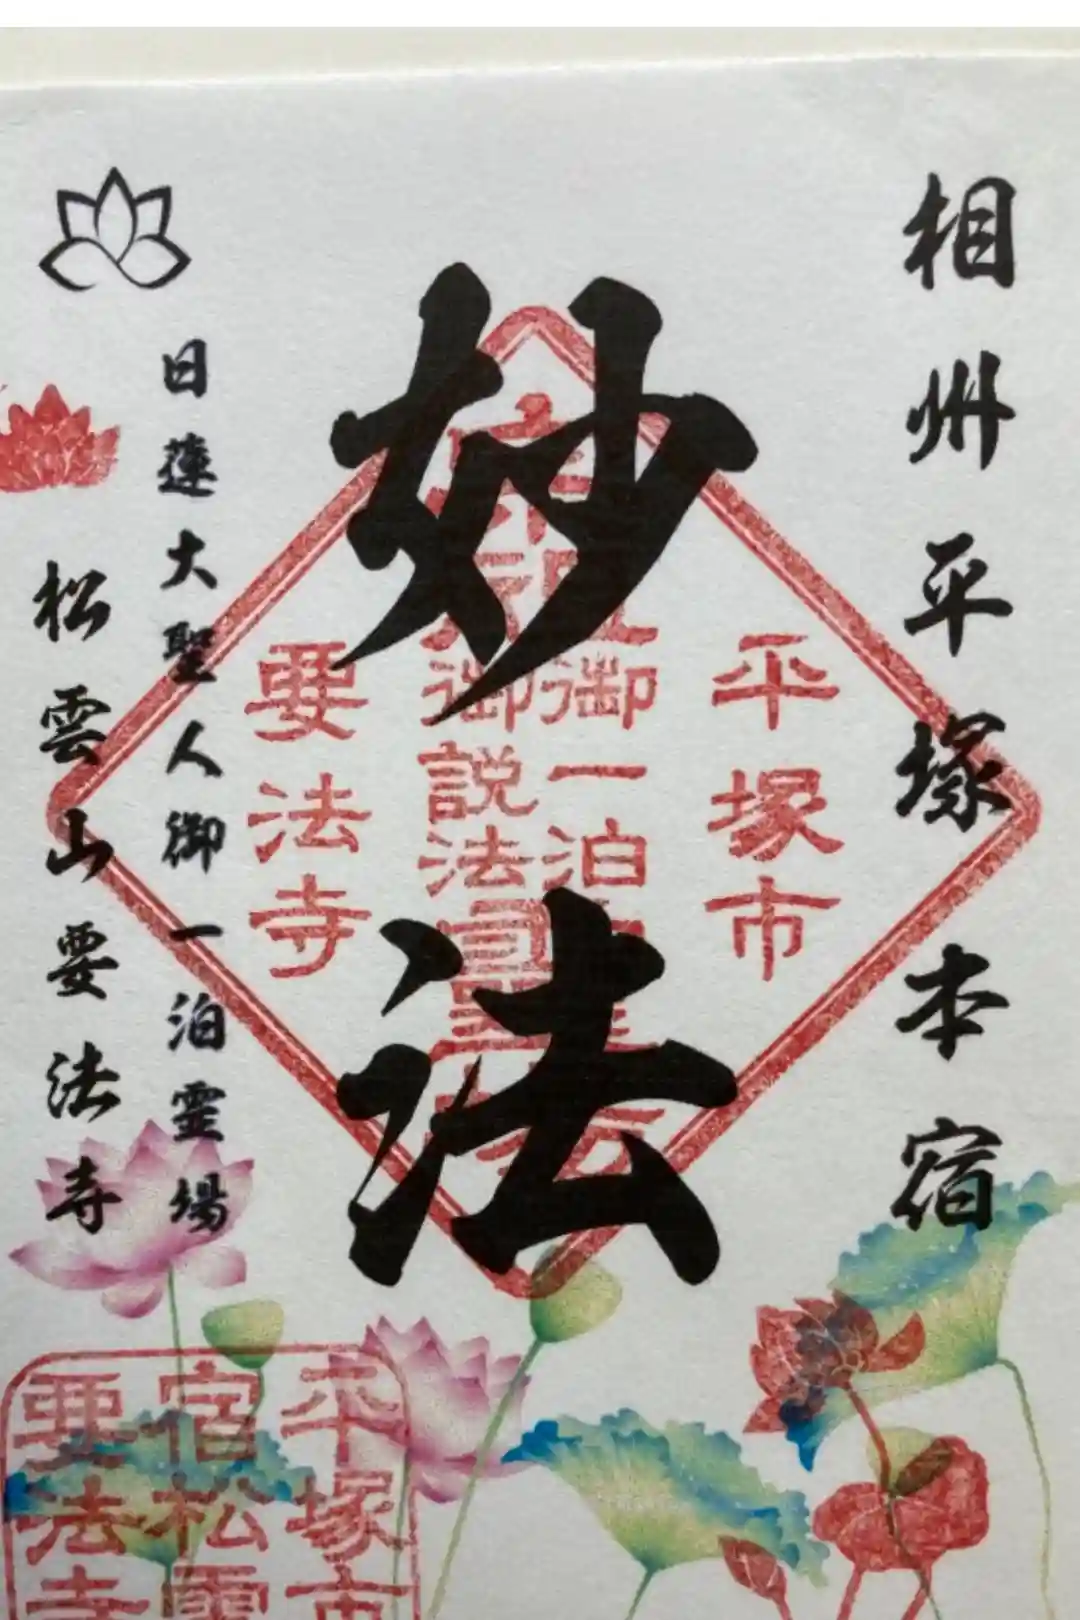 相州平塚本宿
妙法
日蓮大聖人御一泊霊場
松雲山要法寺
平塚市
御一泊
御説法
要法寺
平塚市
宿松雲
要法寺